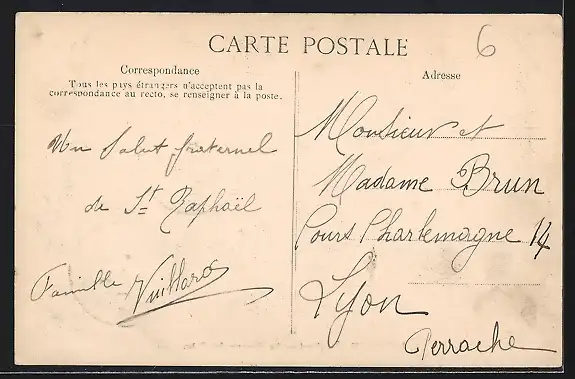 CARTE POSTALE
6
Correspondance
Tous les pays étrangers n'acceptent pas la
correspondance au recto, se renseigner à la poste.
Adresse
Un Salut fraternel
de St Raphaël
Famille Vuillard
Monsieur et
Madame Brun
Cours Charlemagne 14
Lyon
Perrache